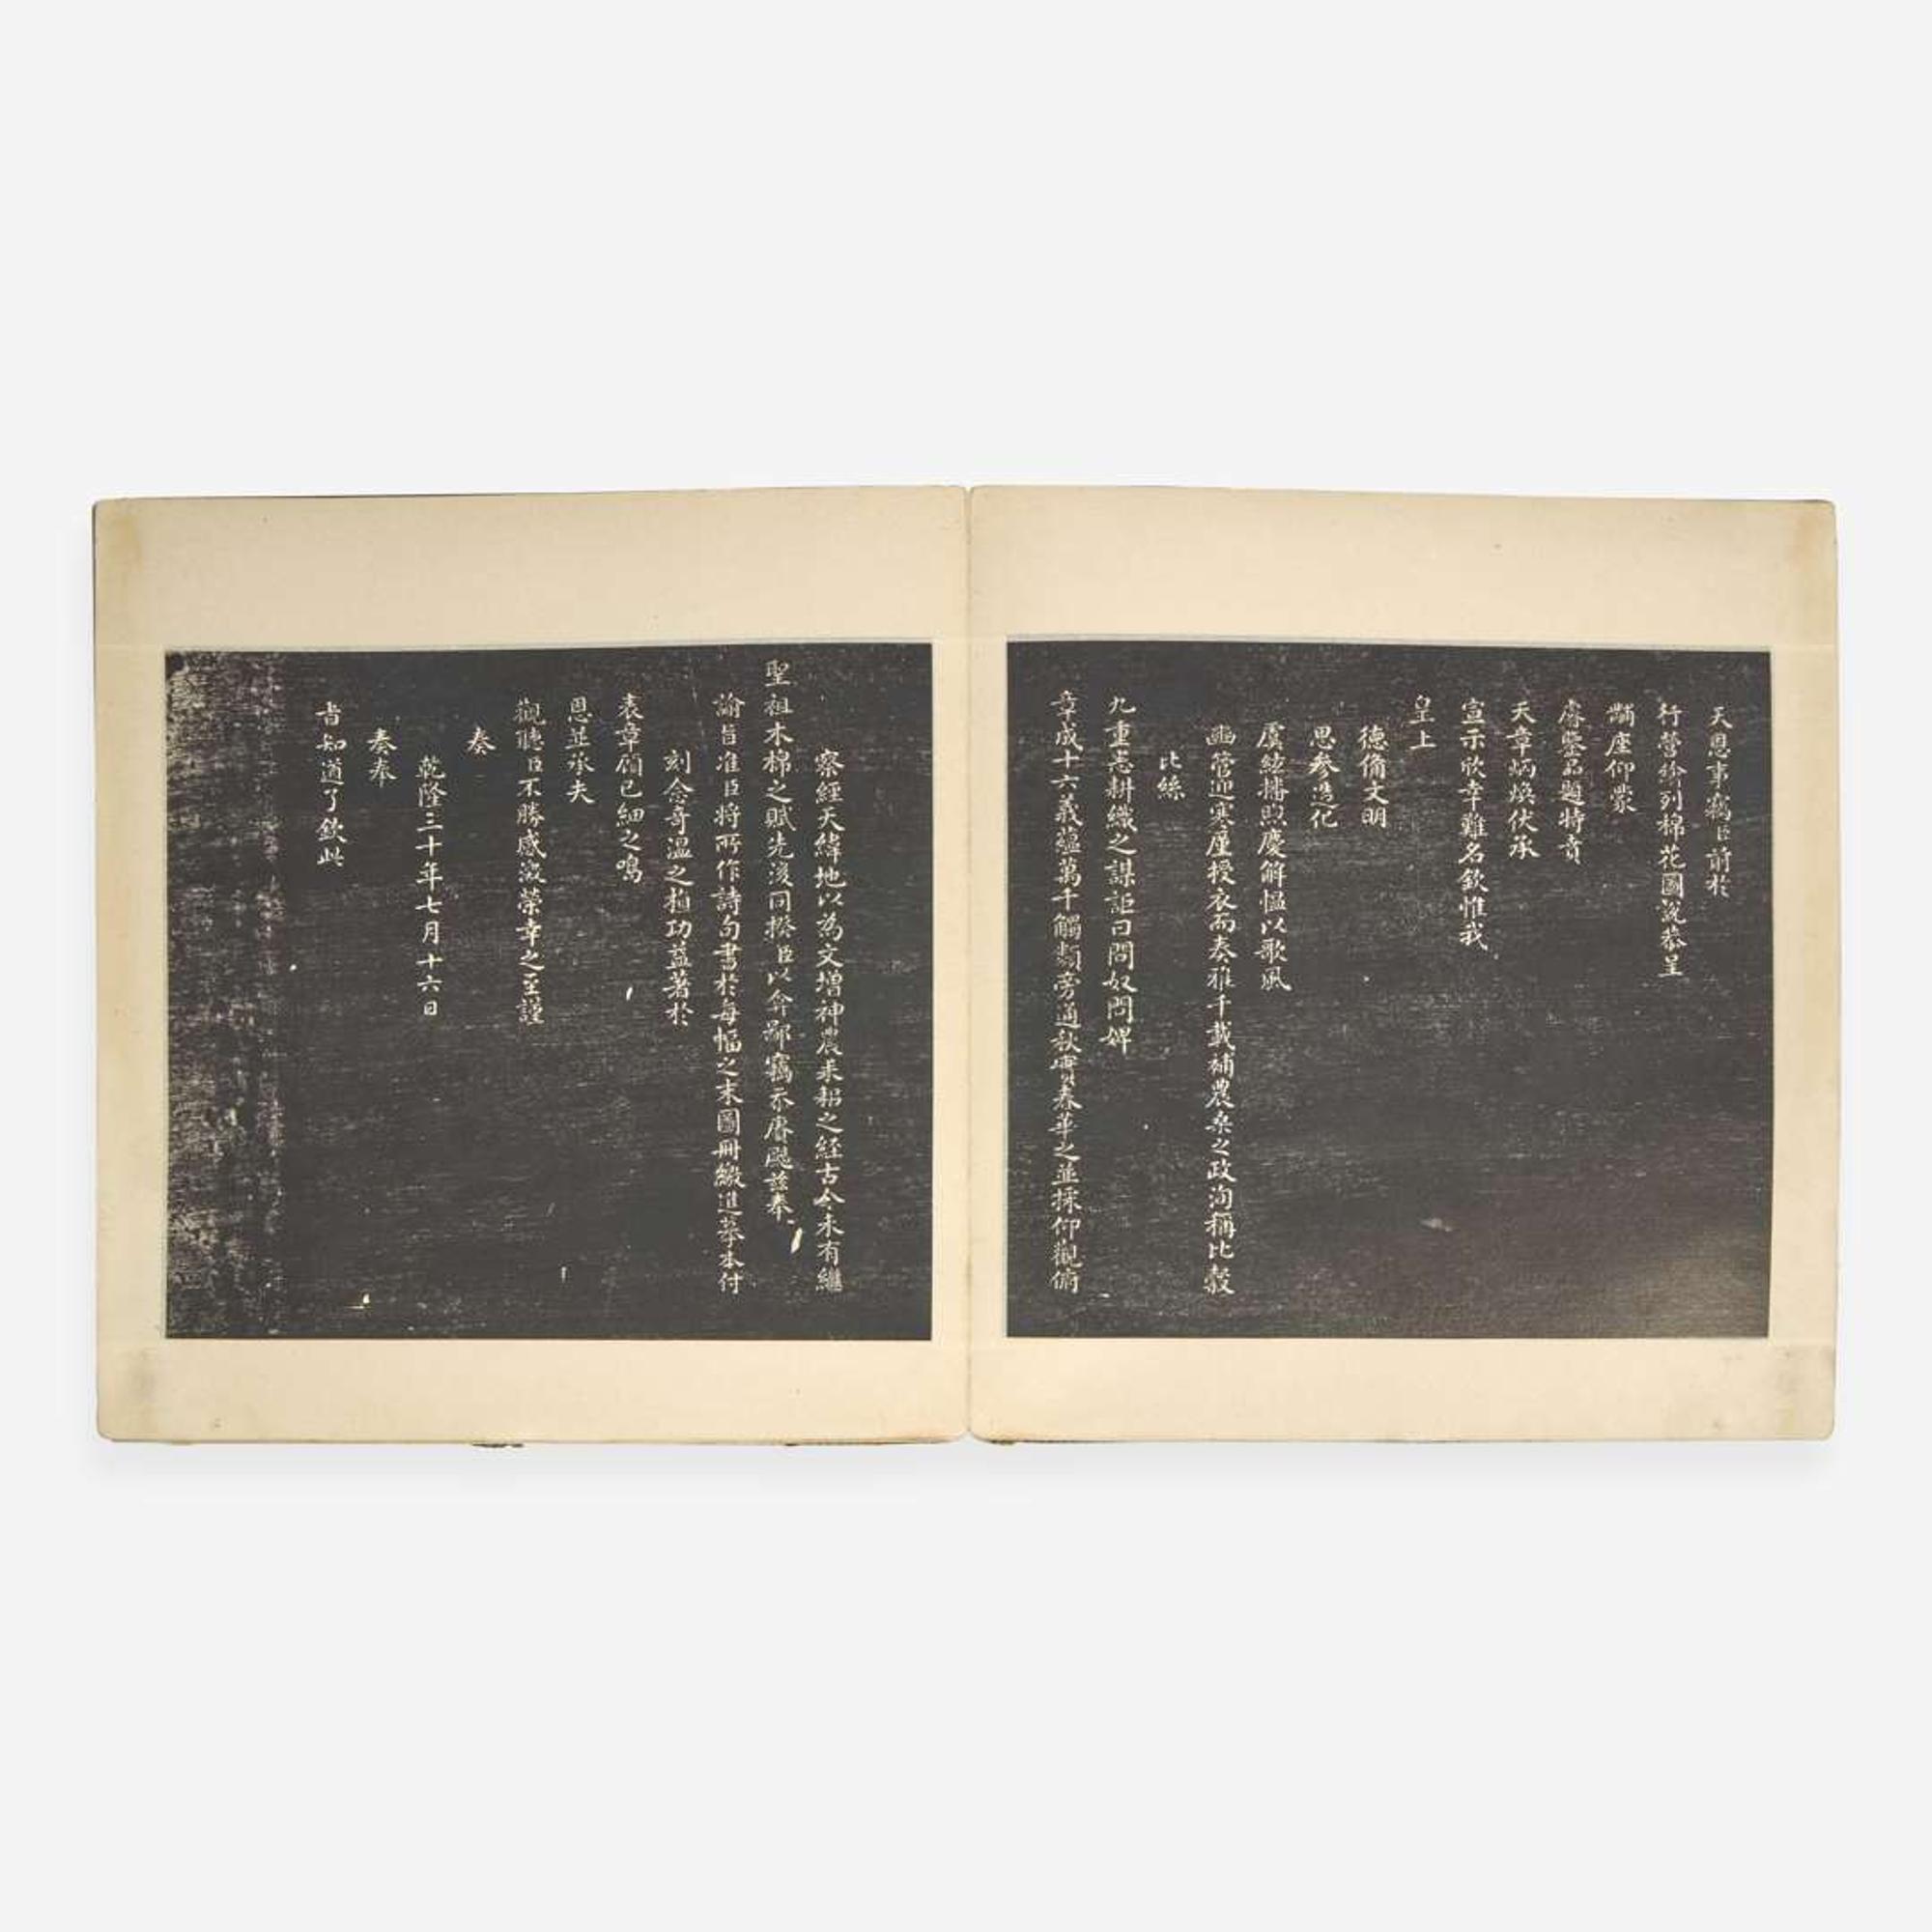 天恩事竊臣前於
行營繪列棉花圖說恭呈
黼座仰蒙
睿鑒品題特賁
天章炳煥伏承
宣示欣幸難名欽惟我
皇上
德備文明
思參造化
虞絃播煦慶解慍以歌風
豳管迎寒廑授衣而奏雅千載補農桑之政洵稱比穀
比絲
九重悉耕織之謀詎曰問奴問婢
章成十六義蘊萬千觸類旁通秋實春華之並採仰觀俯
察經天緯地以為文增神農耒耜之經古今未有繼
聖祖木棉之賦先後同揆臣以弇鄙竊忝賡颺茲奉
諭旨准臣將所作詩句書於每幅之末圖冊繳進摹本付
刻念哥溫之植功益著於
表章顧已細之鳴
恩並承夫
觀聽臣不勝感激榮幸之至謹
奏
乾隆三十年七月十六日
奏奉
旨知道了欽此